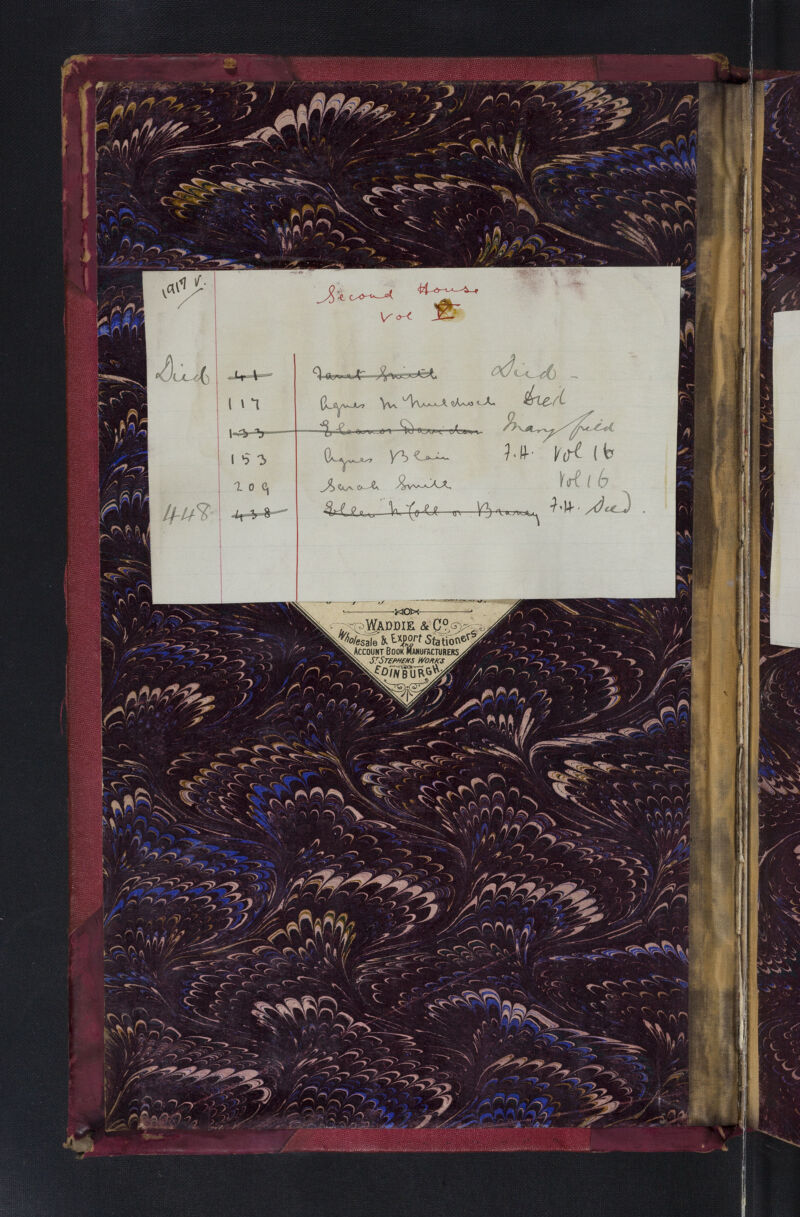 1917 V.
Second House
Vol V
Died 41 Janet Smith Died -
117 Agnes McMurdoch Died
133 Eleanor Davidson Maryfield
153 Agnes Blain F.H. Vol 16
209 Sarah Smith Vol 16
448 438 Ellen McColl or Braney F.H. Died.
WADDIE & Co.
Wholesale & Export Stationers
AND
ACCOUNT BOOK MANUFACTURERS
ST STEPHENS WORKS
EDINBURGH.